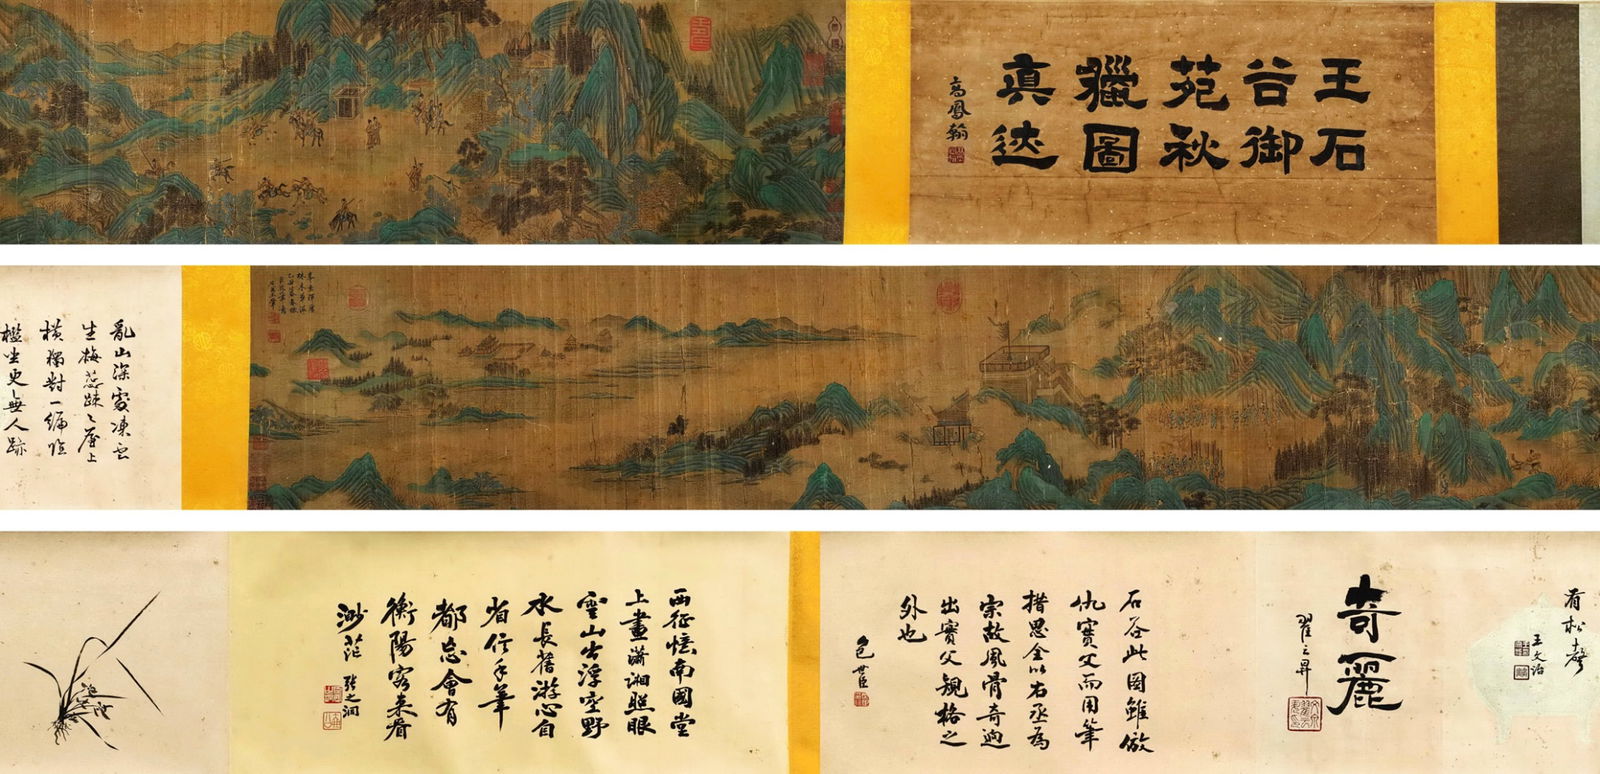 王石
谷御
苑秋
獵圖
真迹
高鳳翰
亂山深處凍雲
生梅蕊疎〻屋上
橫獨對一編臨
檻坐更無人跡
有松聲
王文治
奇麗
石谷此圖雖倣
仇實父而用筆
措思全以右丞為
宗故風骨奇逈
出實父規格之
外也
包世臣
西征憶南國堂
上畫瀟湘照眼
雲山出浮空野
水長舊游心自
省信手筆
都忘會有
衡陽客來看
渺茫
張之洞